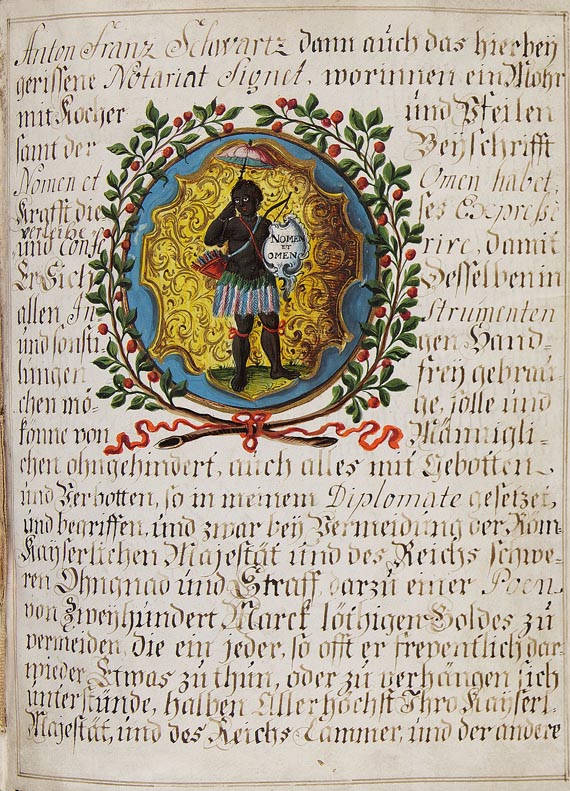 Anton Franz Schwartz dann auch das hierbey
gerissene Notariat Signet, worinnen ein Mohr
mit Kocher und Pfeilen
samt der Beyschrifft
Nomen et Omen habet,
Krafft dieses Expresse
verleihe
und conferire, damit
Er Sich Desselben in
allen Instrumenten
und sonsti gen Hand-
lungen frey gebrau-
chen mö- ge, solle und
könne von Männigli-
chen ohngehindert, auch alles mit Gebotten
und Verbotten, so in meinem Diplomate gesetzet,
und begriffen, und zwar bey Vermeidung der Röm.
Kayserlichen Majestät und des Reichs schwe-
ren Ohngnad und Straff, darzu einer Poen
von Zweyhundert Marck löthigen Goldes zu
vermeiden, die ein jeder, so offt er freventlich dar-
wieder Etwas zu thun, oder zu verhängen sich
unterstünde, halben Allerhöchst Ihro Kayserl.
Majestät, und des Reichs Cammer, und der andere
NOMEN
ET
OMEN